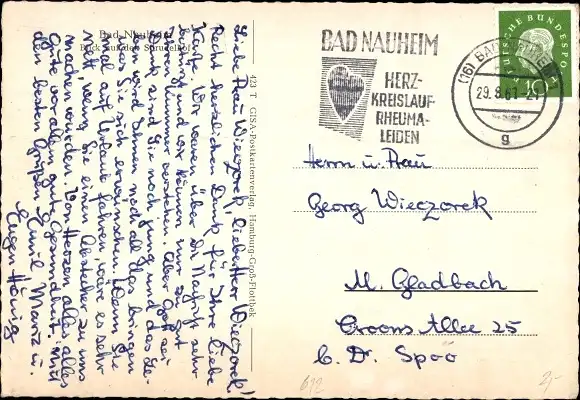 Bad Nauheim
Blick auf den Sprudelhof
Liebe Frau Wieczorek, lieber Herr Wieczorek!
Recht herzlichen Dank für Ihre liebe
Karte. Wir waren über die Nachricht sehr
und wir können nur zu gut
Ihren Kummer verstehen. Aber Gott sei
Dank sind Sie noch jung und das Le-
ben wird Ihnen noch all das bringen
was Sie sich erwünschen. Wenn Sie
mal auf Urlaub fahren, wäre es sehr
nett, wenn Sie einen Abstecher zu uns
machen würden. Von Herzen alles alles
Gute vor allem gute Gesundheit. Mit
den besten Grüßen Emil, Maria u.
Eugen
423 T GISA-Postkartenverlag, Hamburg-Groß-Flottbek
BAD NAUHEIM
HERZ-
KREISLAUF-
RHEUMA-
LEIDEN
(16) BAD NAUHEIM
29.8.61-21
g
DEUTSCHE BUNDESPOST
10
Herrn u. Frau
Georg Wieczorek
M. Gladbach
Croons Allee 25
b. Dr. Spoo
612
2,-